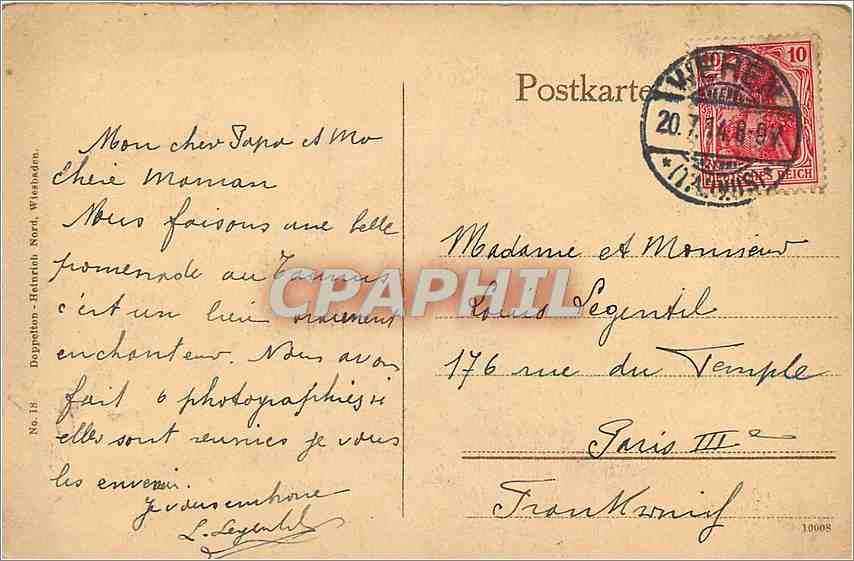 Postkarte
10
WEHEN
20.7.14.8-9V.
* (TAUNUS) *
DEUTSCHES REICH
Mon cher Papa et Ma
chère Maman
Nous faisons une belle
promenade au Taunus
c'est un lieu vraiment
enchanteur. Nous avons
fait 6 photographies si
elles sont réunies je vous
les enverrai.
Je vous embrasse
L. Legentil
Madame et Monsieur
Louis Legentil
176 rue du Temple
Paris IIIe
Frankreich
No. 18 Doppelton-Heinrich Nord, Wiesbaden.
10008
CPAPHIL